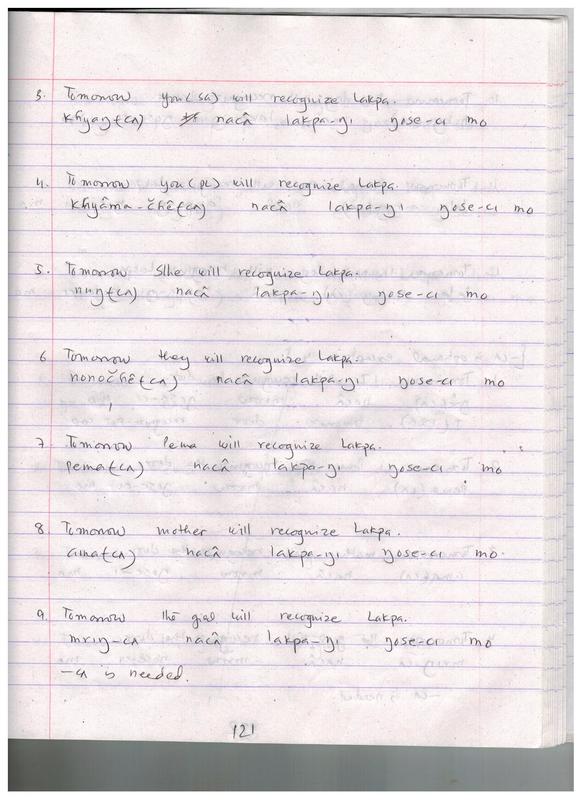 3. Tomorrow you (SG) will recognize Lakpa.
khyaŋ(-cʌ) nacâ lakpa-ŋı ŋose-cı mo
4. Tomorrow you (PL) will recognize Lakpa.
khyâma-čhê(-cʌ) nacâ lakpa-ŋı ŋose-cı mo
5. Tomorrow S/he will recognize Lakpa.
(-cʌ) nacâ lakpa-ŋı ŋose-cı mo
6 Tomorrow they will recognize Lakpa.
nonočhê(-cʌ) nacâ lakpa-ŋı ŋose-cı mo
7. Tomorrow Pema will recognize Lakpa.
pema(-cʌ) nacâ lakpa-ŋı ŋose-cı mo
8. Tomorrow mother will recognize Lakpa.
ama(-cʌ) nacâ lakpa-ŋı ŋose-cı mo.
9. Tomorrow the girl will recognize Lakpa.
mrıŋ-cʌ nacâ lakpa-ŋı ŋose-cı mo
-cʌ is needed.
121